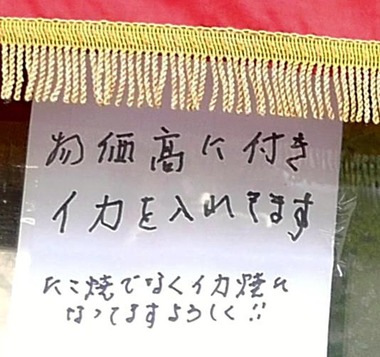 物価高に付き
イカを入れてます
たこ焼でなくイカ焼に
なってますよろしく!!